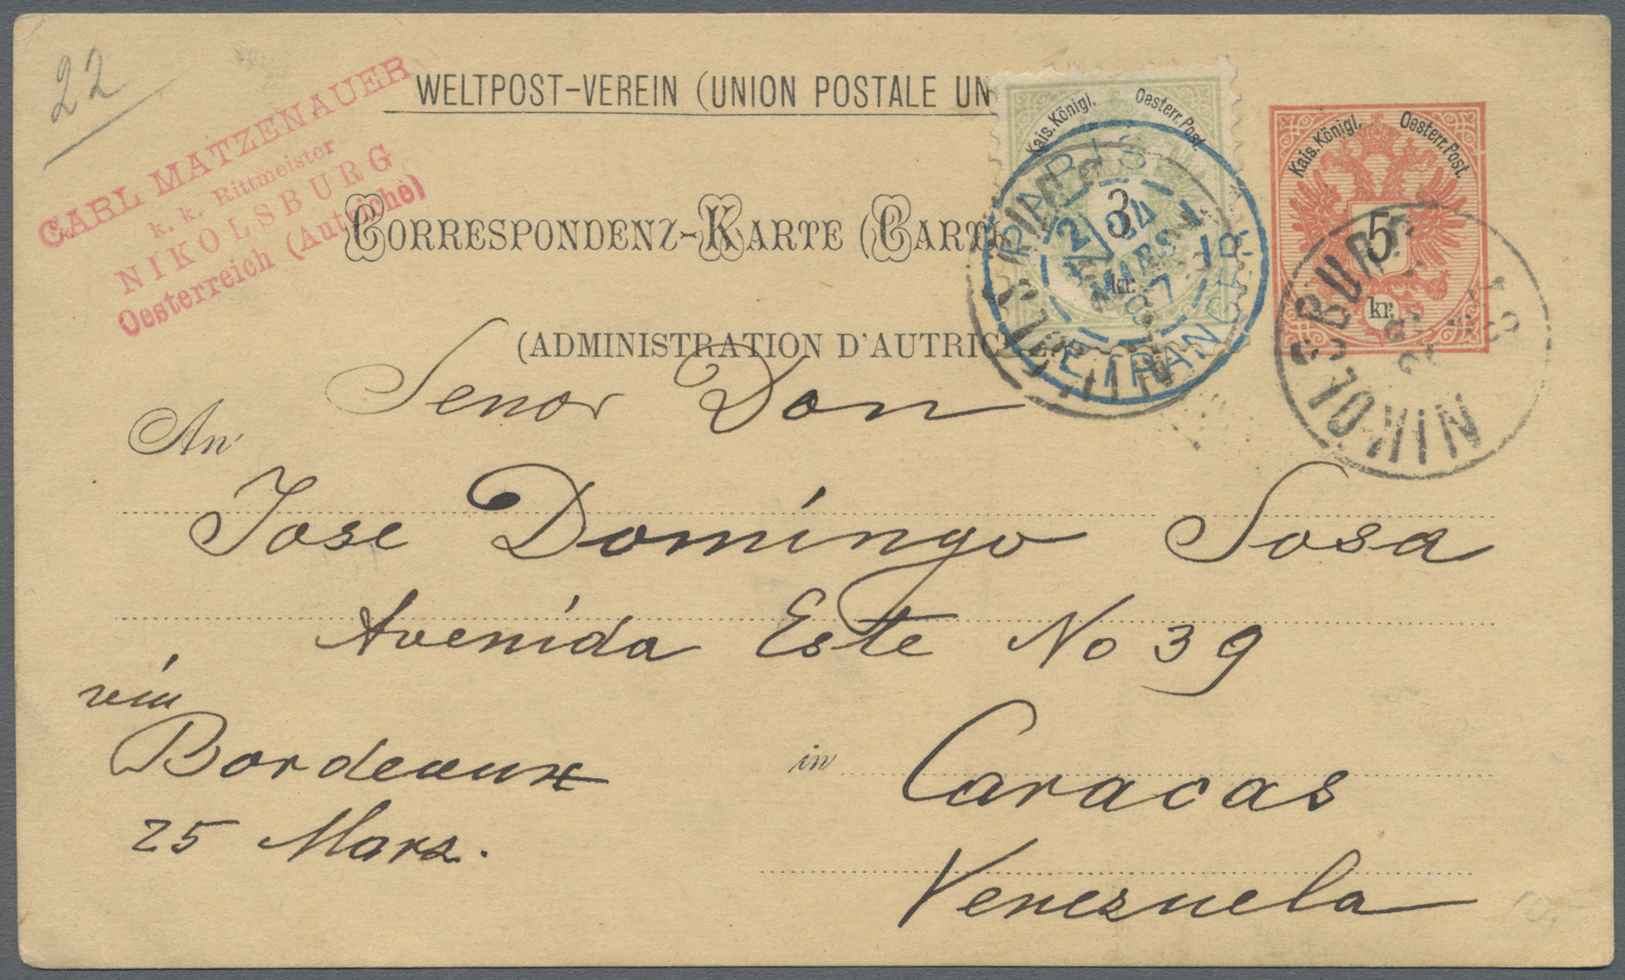 22
CARL MATZENAUER
k. k. Rittmeister
NIKOLSBURG
Oesterreich (Autriche)
WELTPOST-VEREIN (UNION POSTALE UN
CORRESPONDENZ-KARTE (CARTE
(ADMINISTRATION D'AUTRICHE
Kais. Königl. Oesterr. Post.
3
kr.
PARIS
24
MARS
87
ETRANGER
Kais. Königl. Oesterr. Post.
5
kr.
NIKOLSBURG
An
Senor Don
Jose Domingo Sosa
Avenida Este No 39
via
Bordeaux
25 Mars.
in Caracas
Venezuela